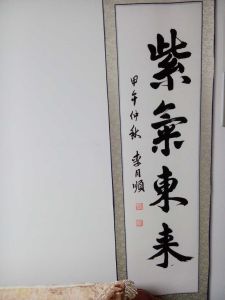 紫氣東来
甲午仲秋 李月順